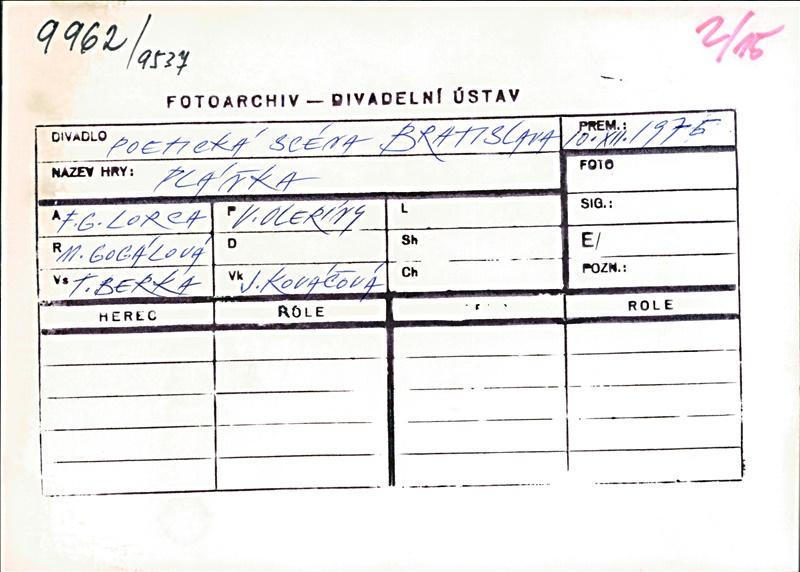 9962/9537
2/15
FOTOARCHIV — DIVADELNÍ ÚSTAV
DIVADLO POETICKÁ SCÉNA BRATISLAVA PREM.: 10.XII.1975
NÁZEV HRY: PLÁŇKA FOTO
A F.G. LORCA P V. OLERÍNY L SIG.:
R M. GOGÁLOVÁ D Sh E/
Vs T. BERKA Vk J. KOVÁČOVÁ Ch POZN.:
HEREC RÔLE ROLE